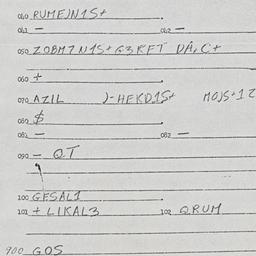 040 RUMEJN1S+
041 — 042 —
050 ZOBM7N1S+G3RFT DA,C+
060 +
070 AZIL )-HEKD1S+ MOJS+12
080 $
081 — 082 —
090 — QT
100 GESAL1
101 + LIKAL3 102 QRUM
900 GOS